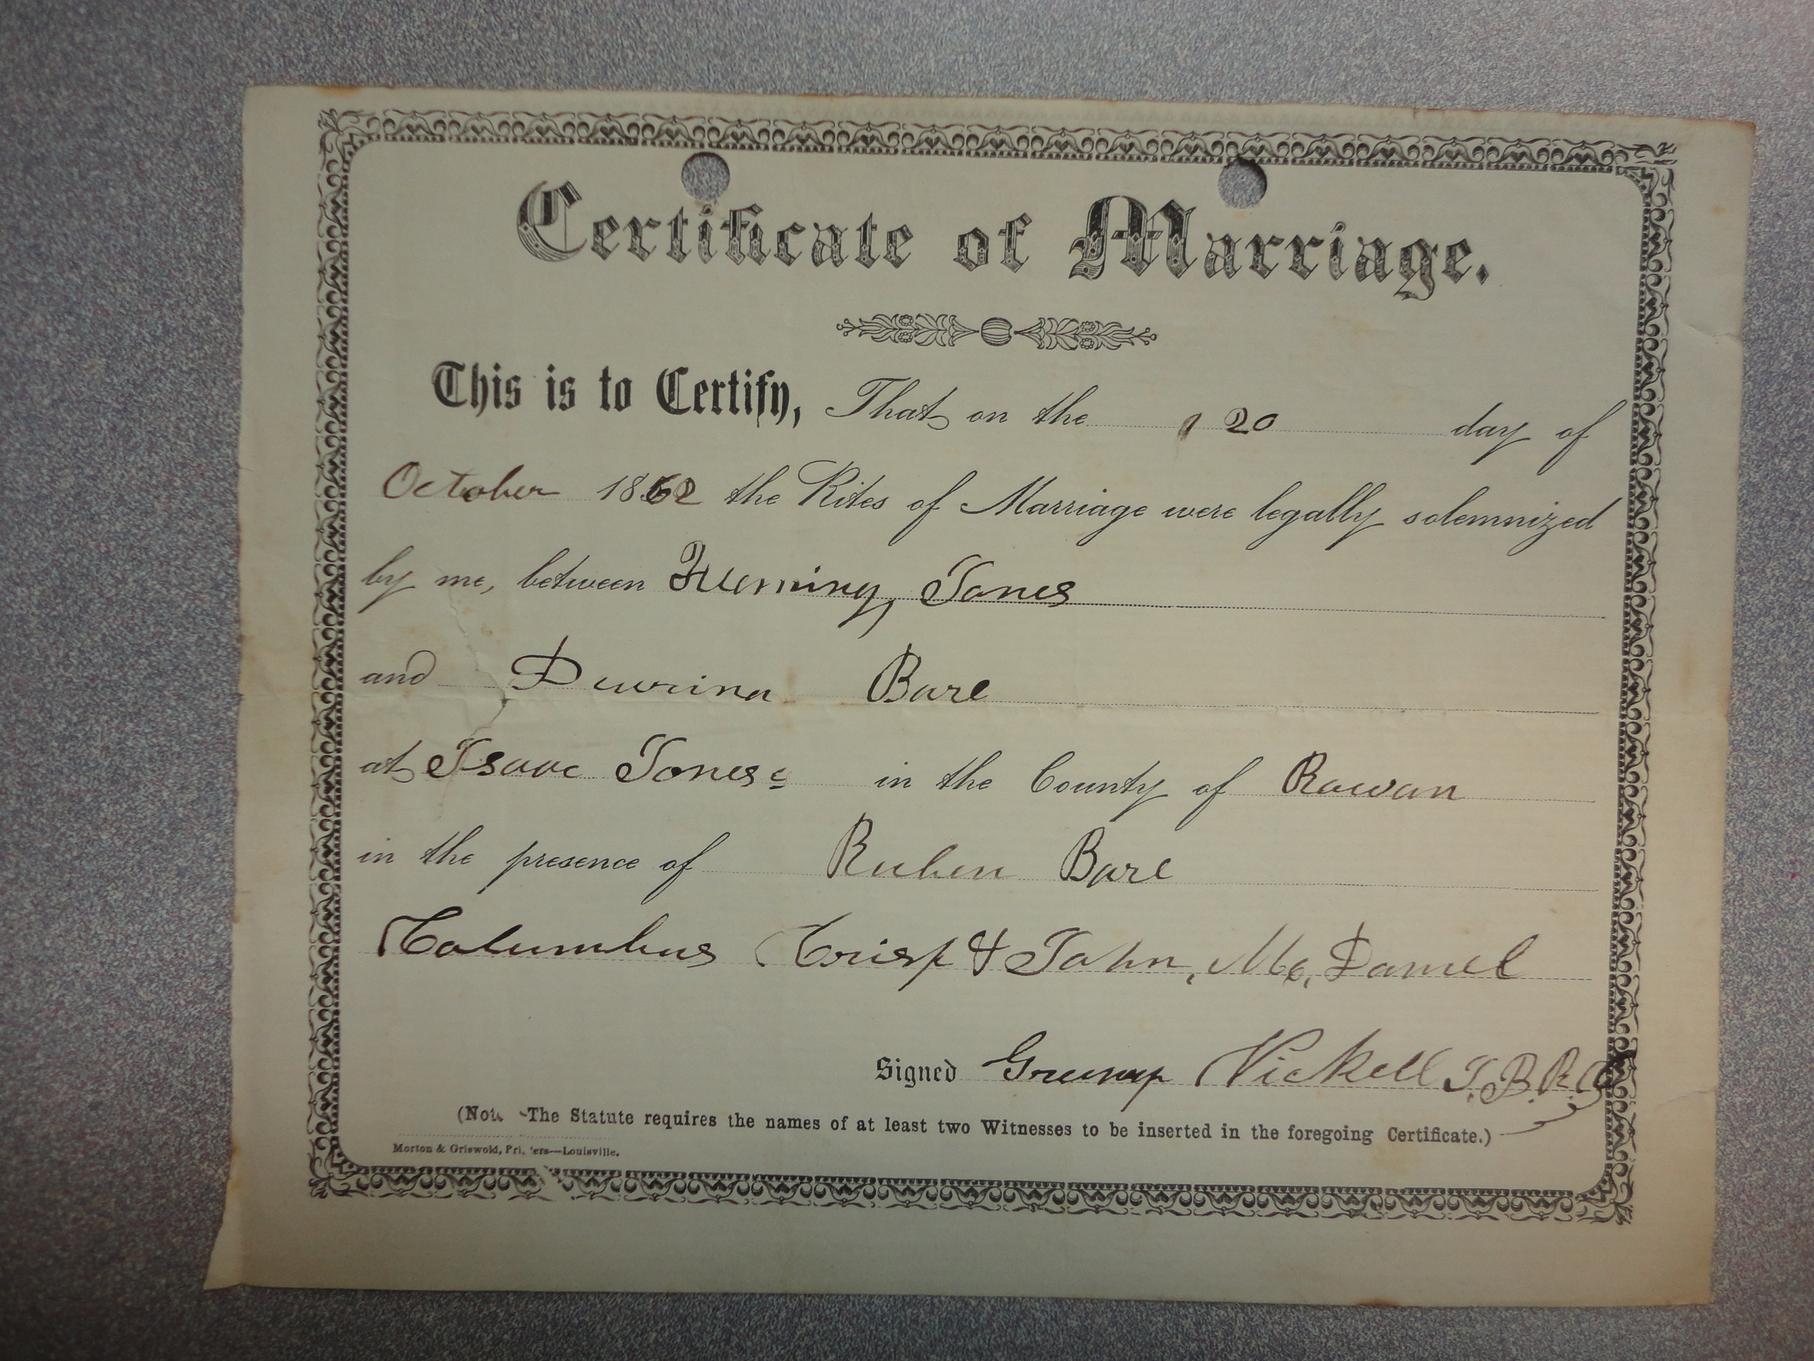 Certificate of Marriage.
This is to Certify, That on the 20 day of
October 1862 the Rites of Marriage were legally solemnized
by me, between Fleming Jones
and Bare
at Isaac Joneses in the County of Rowan
in the presence of Ruben Bare
Columbus Crisp & John, Mc, Daniel
Signed Nickell J.B.R.C
(Note -The Statute requires the names of at least two Witnesses to be inserted in the foregoing Certificate.)
Morton & Griswold, Printers—Louisville.